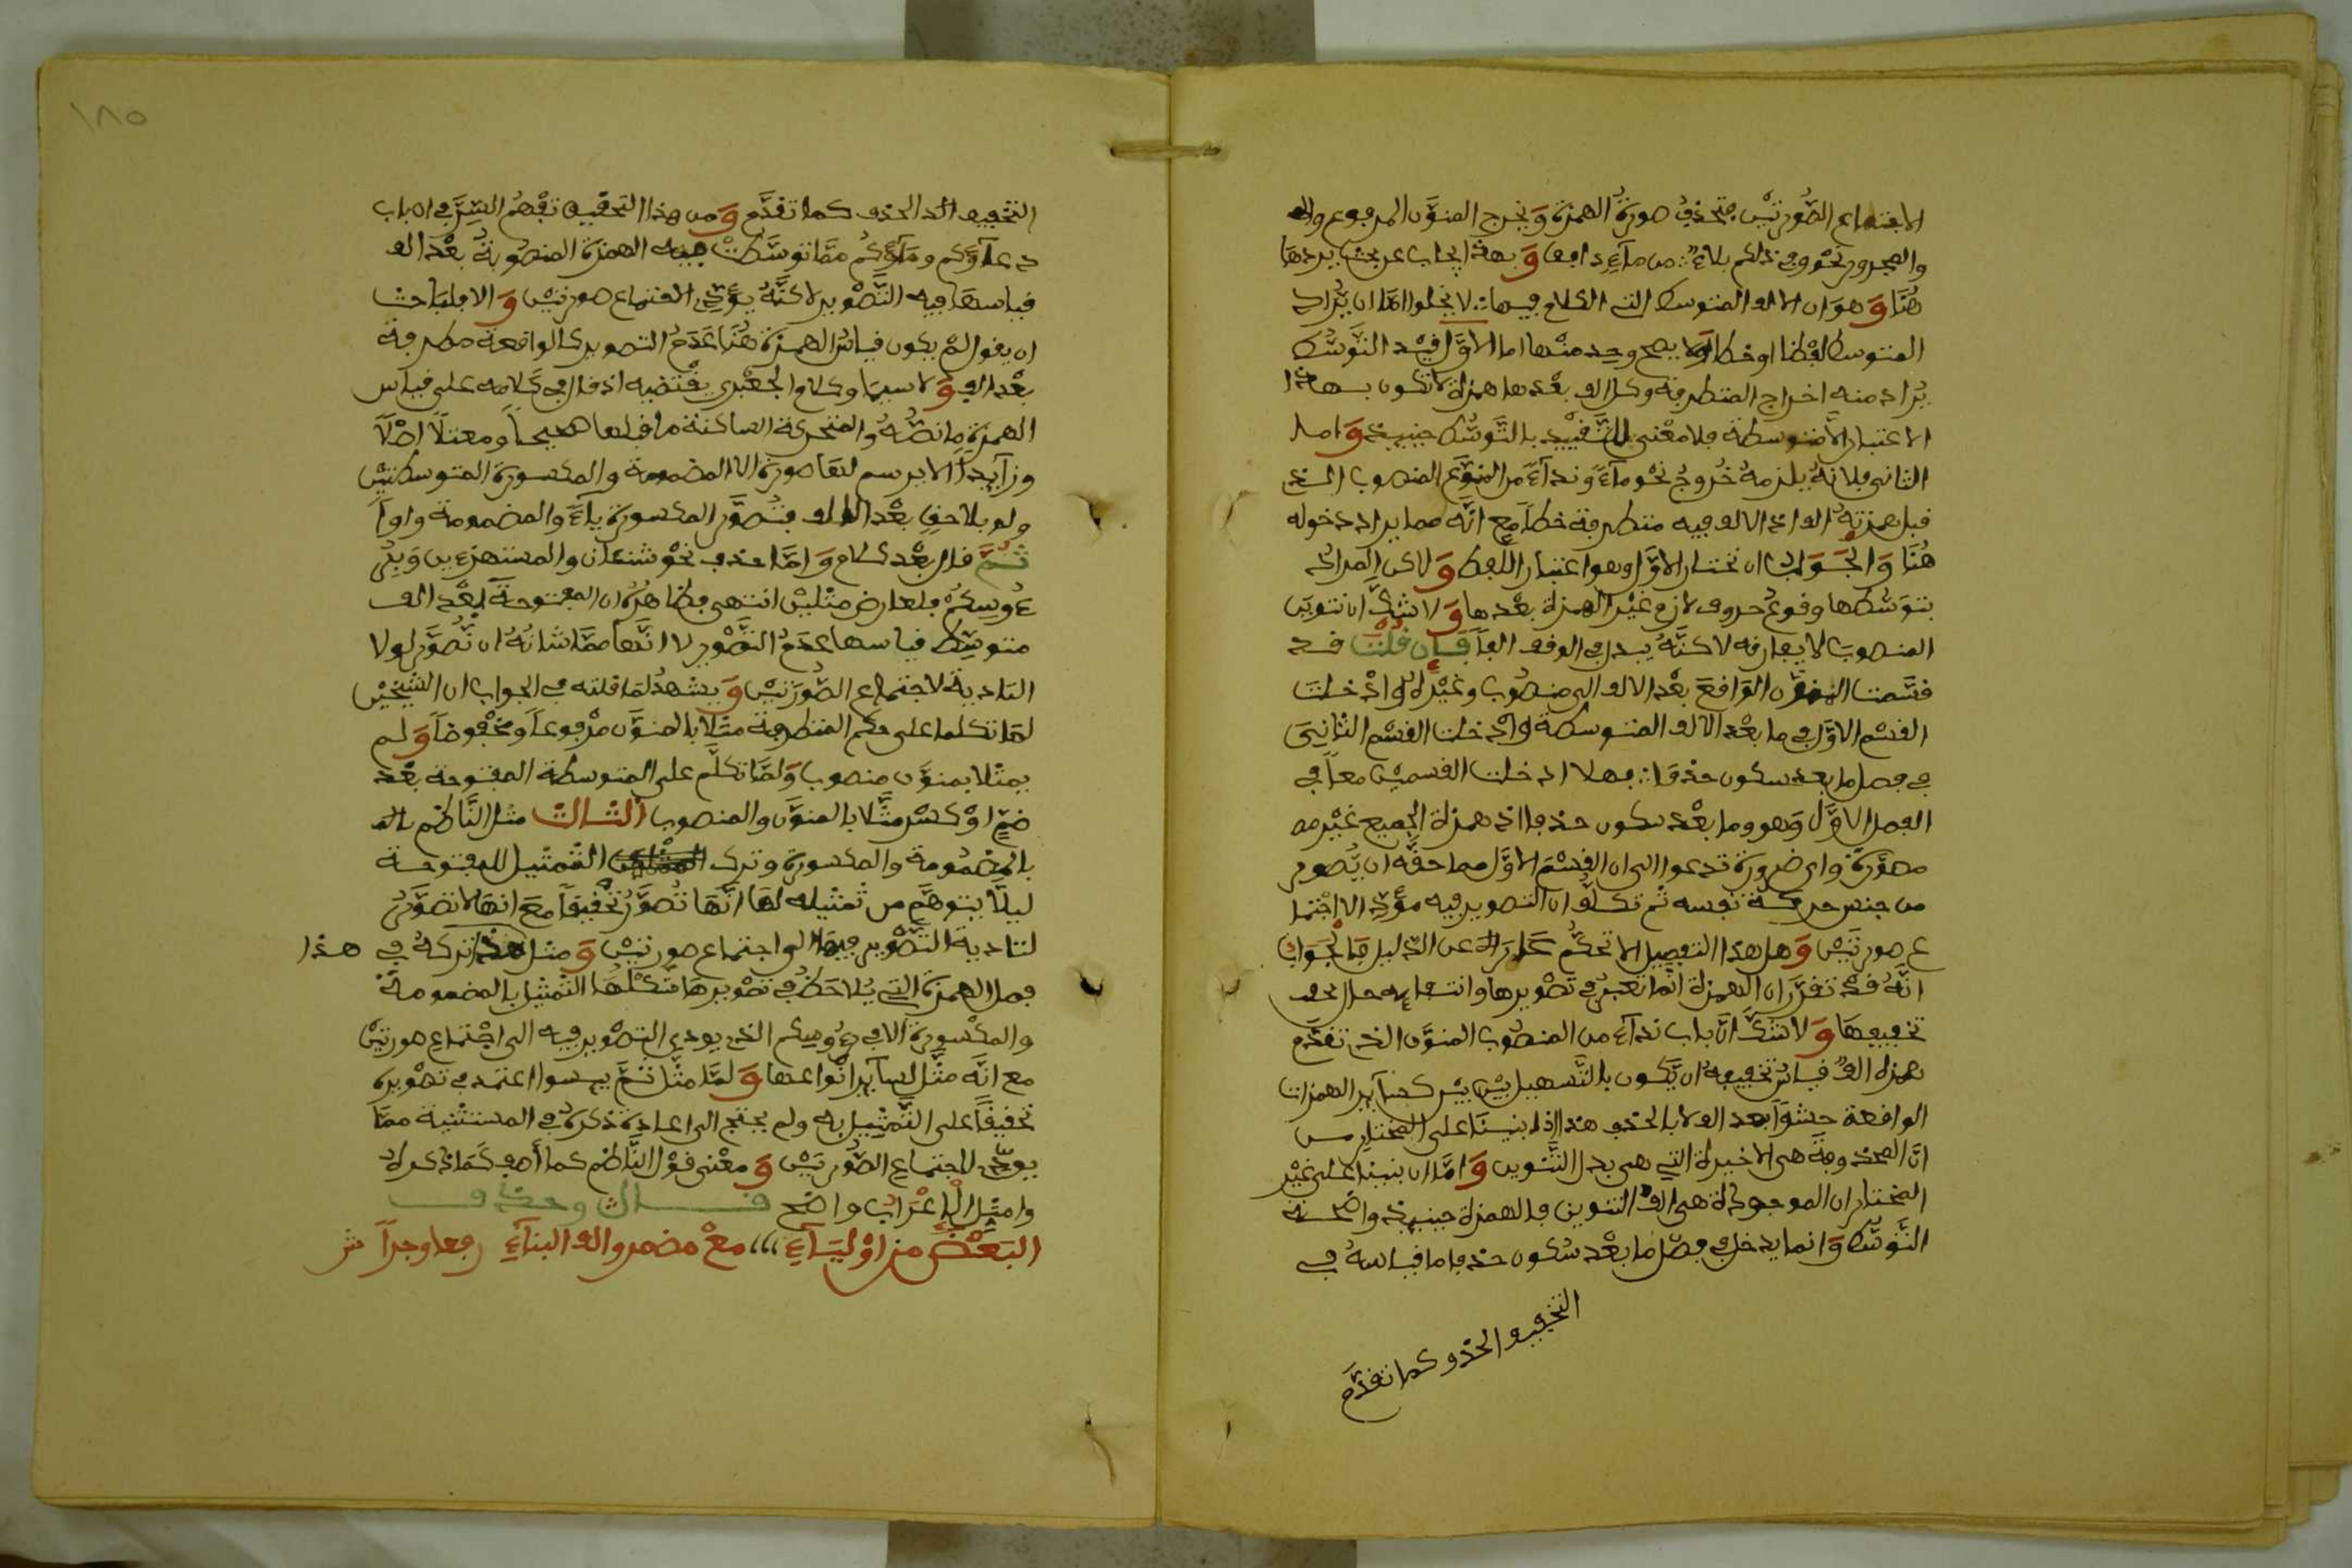 الاجتماع الصورتين فتحذف صورة الهمزة وَيخرج المنوّن المرفوع
والمجرور نحو وفي ذلكم بلاءٌ من ماءٍ دافق وَبهذا يجاب عن بحث يردها
هُنَا وَهوَ ان الالف المتوسط التي الكلام فيها لا يخلوا امّا ان يُّراد
المتوسط لفظا او خطا ولا يصح وحد منهما اما الاوّل فقيد التوسّط
يُراد منه اخراج المتطرفة وكل الف بعْدها همزة لا تكون بهذا
الاعتبار الا متوسطة فلا معْنى للتقْييد بالتّوسّط حينيذ وَاما
الثاني فلانهُ يلزمهُ خُروجُ نحْو ماءً ونداءً من المنوّن المنصوب الذي
قبل همزتهِ الف اذ الالف فيه متطرفة خطا مع انّه مما يراد دخوله
هُنَا وَالجَوابُ ان نختار الاوّل وهو اعتبار اللّفظ وَلاكن المراد
بتوسّطها وقوعُ حروف لازم غيْر الهمزة بعْدها وَلا شكّ ان تنوين
المنصوب لا يفارقه لاكنّهُ يبدل في الوقف الفاً فإن قلتَ قد
قسّمت المنوّن الواقعَ بعْد الالف الى منصُوب وغيْره وادْخلتَ
القسْم الاوّل في ما بعْد الالف المتوسطة وادْخلت القسْم الثانِيَ
في فصل ما بعد سكون حذفا فهلا ادخلت القسمين معاً في
الفصل الاوّل وَهو وما بعْد سكون حذفا اذ همزة الجميع غيْر
مصوّرة واي ضرورة تدعوا الى ان القسْمَ الاوّل مما حقّه ان يُّصور
من جنس حركة نفسه ثم تكلّف ان التصوير فيه مؤدٍّ الى اجتما
ع صورتيْن وَهل هذا التفصيل الا تحكّم عن الدّليل فالجوَابُ
انّهُ قدْ تقرّر ان الهمزة انّما تعتبرُ في تصْويرها وانتفايه حال
تخفيفهَا وَلا شكّ انّ باب نداءً من المنصُوب المنوّن الذي تقدّم
همزه الفٌ قياسُ تخفيفهِ ان يّكون بالتّسهيل بيْن بيْن كسايْر الهمزات
الواقعة حشوًا بعد الف لا بالحذف هذا اذا بنيْنَا على المختار من
انّ المحذوفة هي الاخيرة التي هي بدل التّنْوين وَامّا ان بنينا على غيْر
المختار ان الموجودة هي الف التنوين فالهمزة حينيذ واضحة
التّوسّط وَانما يدخل في فصل ما بعْد سُكون حذفا ما قياسهُ في
التخفيف الحذف كما تقدّم
١٨٥
التخفيف الحذف كما تقدّم وَمن هذا التحقيق تفْهمُ السّرّ في ان باب
دعآؤكم ومآؤكُم ممّا توسّطتْ فيه الهمزة المنصُوبةُ بعْد الف
قياسهَا فيه التّصْوير لاكنّهُ يؤدّي لاجتماع صورتيْن وَالا فلباحث
ان يقول لمْ يكون قياسُ الهمزة هُنَا عَدَمُ التصوير كالواقعة متطرفة
بعْد الف وَلا سيما وكلام الجعْبري يقْتضيه اذ قال في كلامه على قياس
الهمزة ما نصُّهُ والمتحركة الساكنة ما قبلها صحيحاً ومعتلّاً اصْلاً
وزآيداً لا يرسم لها صورة الا المضمومة والمكسورة المتوسطتيْن
ولو بلاحقٍ بعْد الالف فتُصوّر المكسورة ياءً والمضمومة واواً
ثُمّ قال بعْد كلام وَامّا حذف نحْو شنئان والمستهزءين وَبرُ
ءُوسكمُ فلعارض مثليْن انتهى فظاهرُهُ ان المفتوحة بعْد الف
متوسّط قياسها عدمُ التّصْوير لا انّها ممّا شانهُ ان تُّصوّر لولا
التادية لاجتماع الصّورَتيْن وَيشهدُ لمَا قلته في الجواب ان الشّيخيْن
لمّا تكلما على حكم المتطرفة مثّلا بالمنوّن مرْفوعاً ومخْفوضاً وَلم
يمثلا بمنوّن منصوب وَلمّا تكلّم على المتوسطة المفتوحة بعْد
ضمٍّ اوْ كسْرٍ مثّلا بالمنوّن والمنصوب الثالث مثل النّاظم
بالمضمُومة والمكسورة وترك التّمْثيل للمفتوحة
ليلّا يتوهّم من تمْثيله لها انّهَا تُصوّرُ تحْقيقاً معَ انهَا لا تصوّرُ
لتادية التّصْوير فيها الى اجتماع صورتيْن وَمثل هذا تركهُ في هذا
فصل الهمزة التي يُلاحَظُ في تصْويرهَا شكْلُهَا التّمْثيل بالمضمومة
والمكْسورة الا في رءُوسكم الذي يودي التصْوير فيه الى اجْتماع صورتيْن
مع انّه مثّل لسآير انْواعها وَلمّا مثّل ثَمّ بيسوا اعتمد في تصْويره
تحْقيقاً على التّمْثيل به ولم يحتج الى اعادة ذكره في المستثنية ممّا
يودّي لاجتماع الصّورتيْن وَمعْنى قوْل النّاظم كما أصف كَمَا اذكرهُ
وامثل الْإعْرَابِ واضح قال وحذف
البَعْضُ من اوْليَاءِ مع مضمر والف البنآءِ رفعا وجراً ش